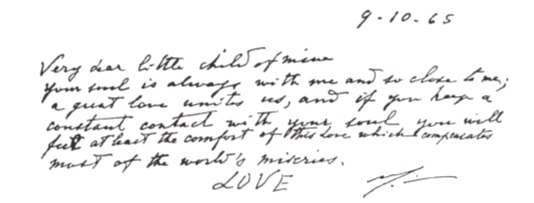 9-10.65
Very dear little child of mine
your soul is always with me and so close to me;
a great love unites us, and if you keep a
constant contact with your soul you will
feel at least the comfort of this Love which compensates
most of the world's miseries.
LOVE